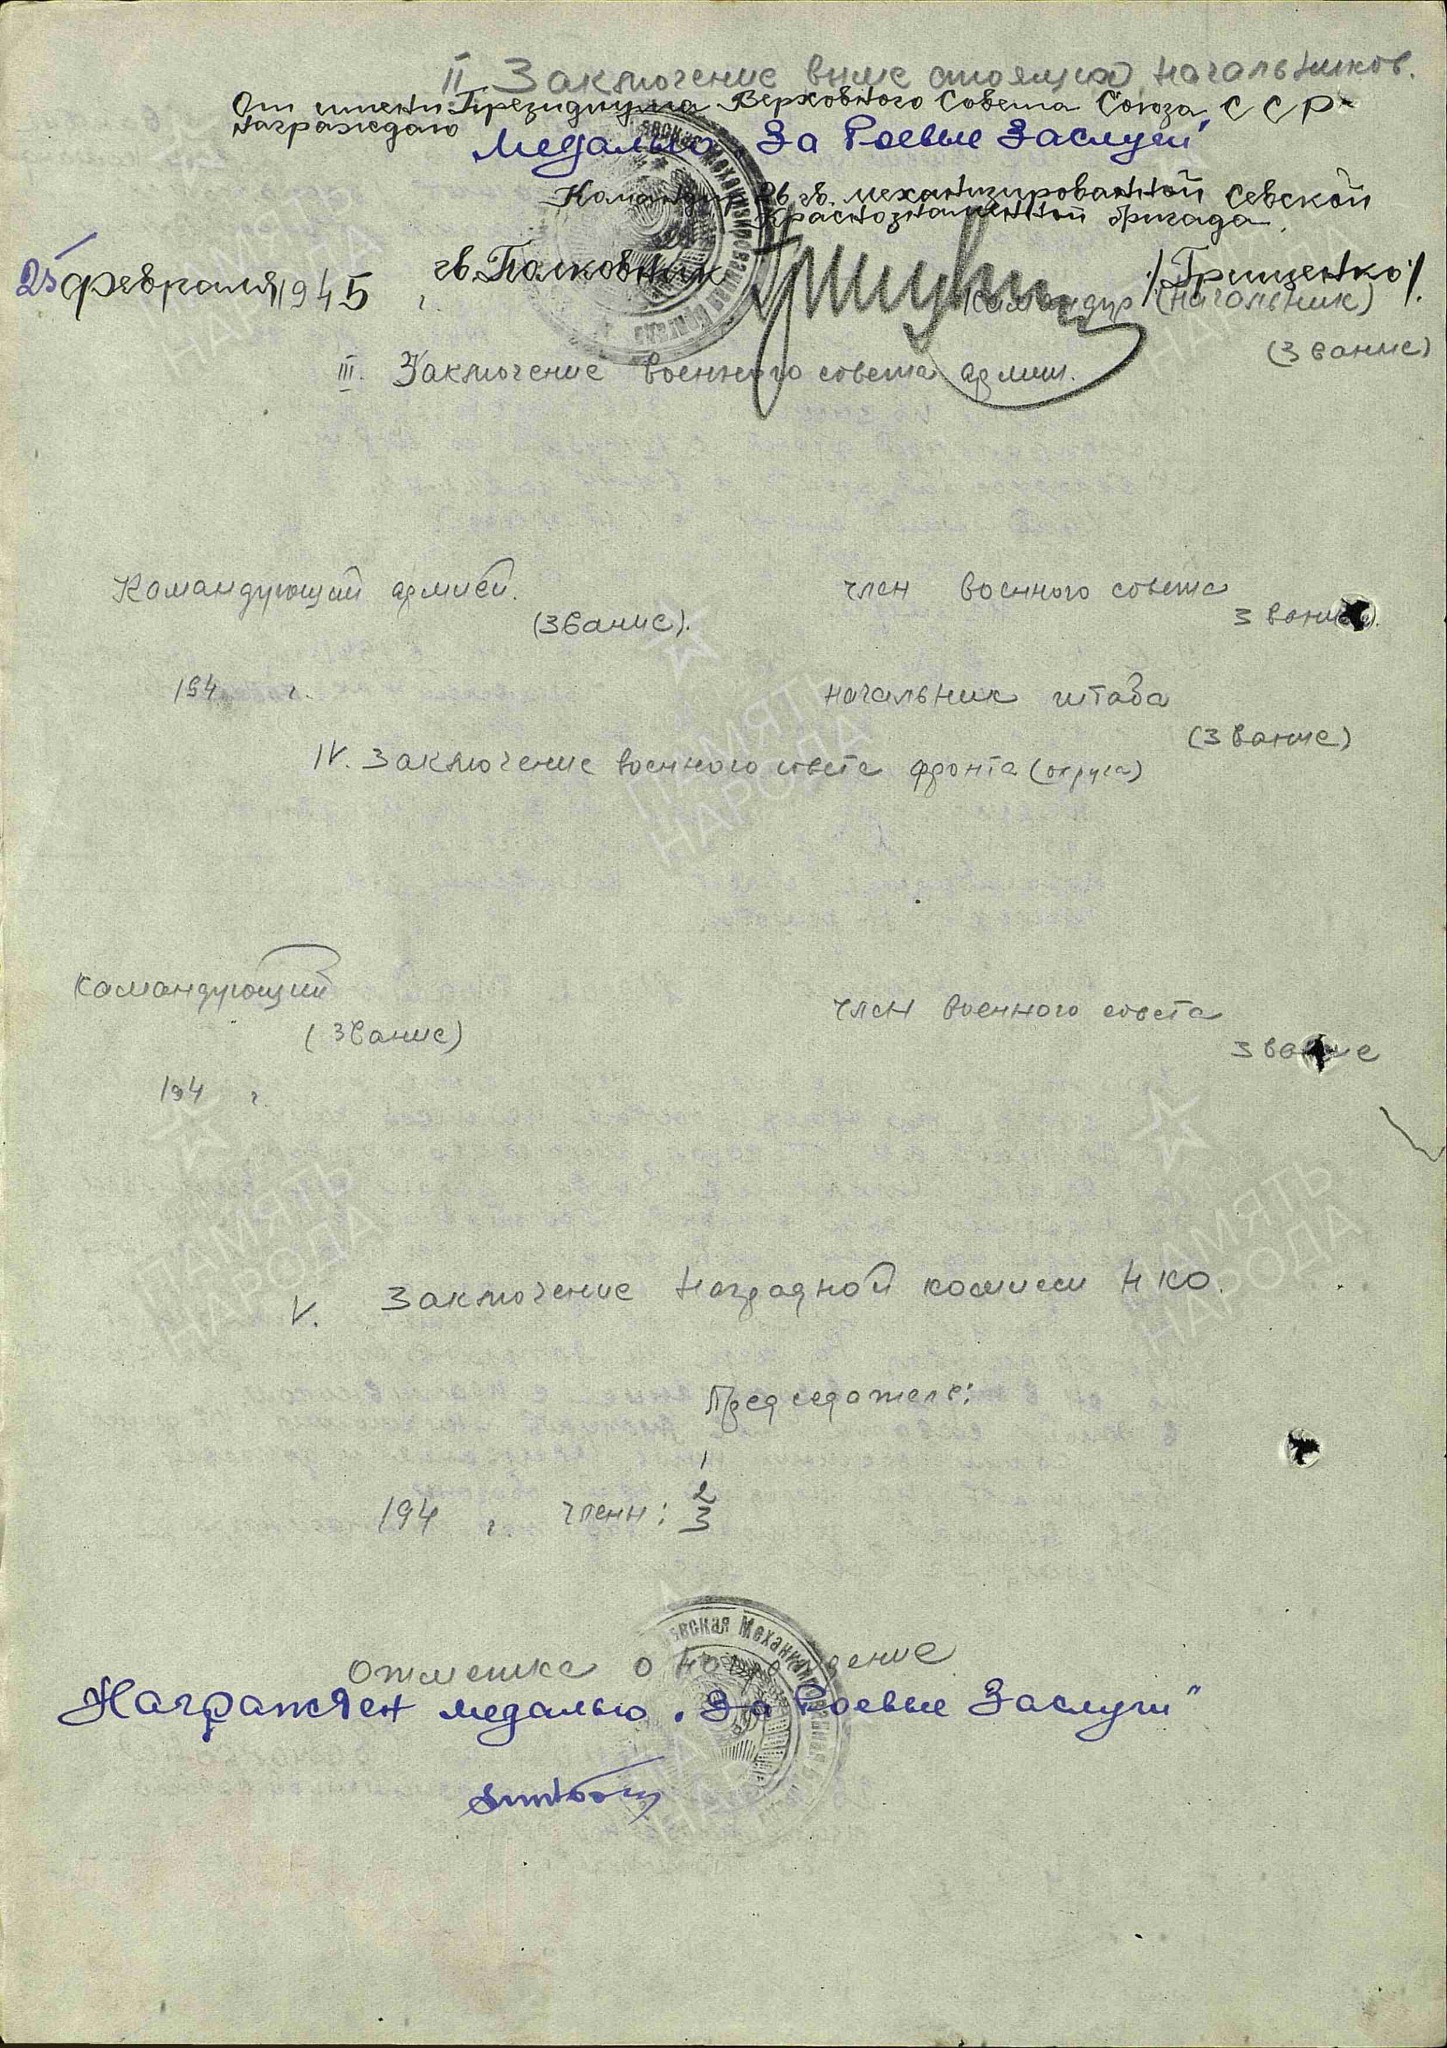 II Заключение выше стоящих начальников.
От имени Президиума Верховного Совета Союза ССР
награждаю
Медалью "За Боевые Заслуги"
Командир 26 гв. механизированной Севской
Краснознаменной бригада
25 февраля 1945 г. гв. Полковник /Грищенко/.
Командир (начальник)
(звание)
III. Заключение военного совета армии.
Командующий армией. член военного совета
(звание). звание).
194 г. начальник штаба
(звание)
IV. Заключение военного совета фронта (округа)
Командующий член военного совета
(звание) звание
194 г.
V. Заключение Наградной комисси НКО.
Председатель:
1
2
194 г. члены: 3
Отметка о награждение
Награжден медалью "За Боевые Заслуги"
ПАМЯТЬ
НАРОДА